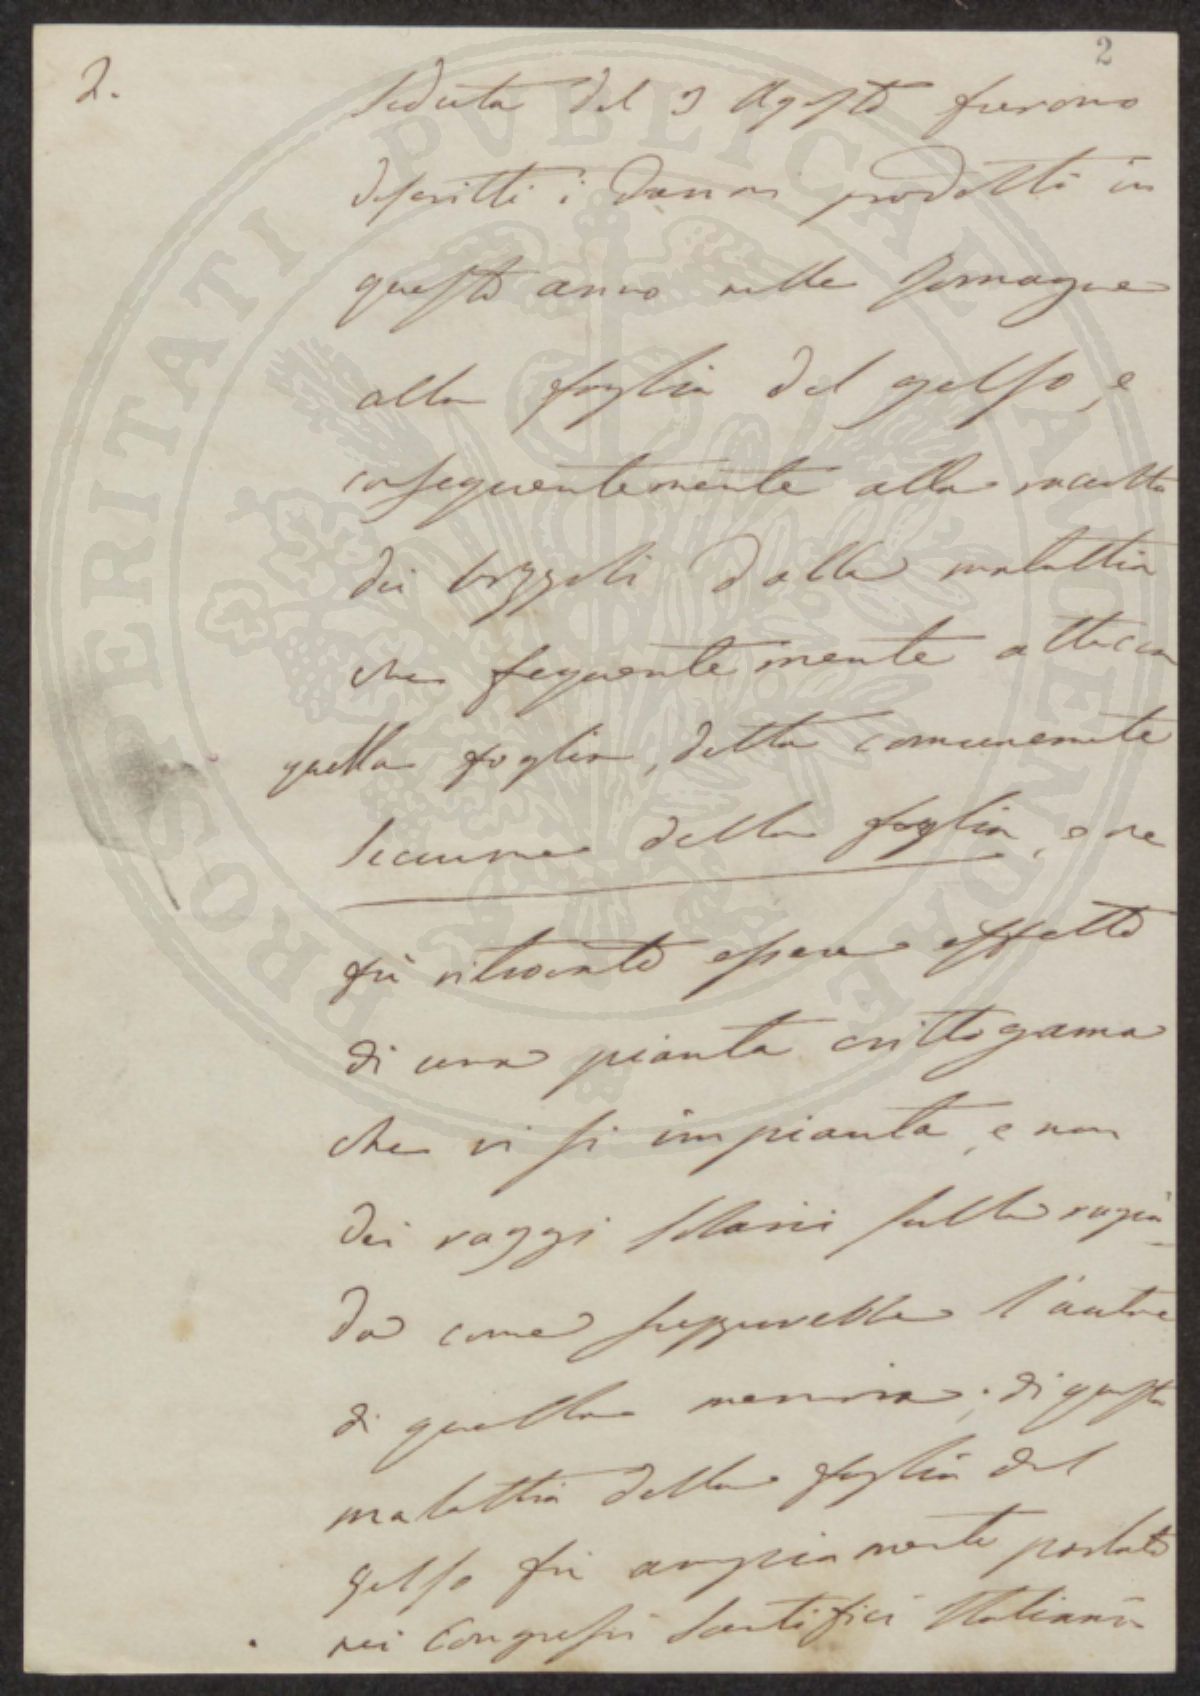 2
2.
Seduta del 9 Agosto furono
descritti i danni prodotti in
questo anno nelle Romagne
alla foglia del gelso, e
conseguentemente alla raccolta
dei bozzoli dalla malattia
che frequentemente attacca
quella foglia, detta comunemente
seccume della foglia, e ne
fù ritrovato essere effetto
di una pianta crittogama
che vi si impianta, e non
dei raggi solari sulla rugia-
da come supporrebbe l'autore
di quella memoria; di questa
malattia della foglia del
gelso fù ampiamente parlato
nei congressi Scientifici Italiani
PROSPERITATI PVBLICAE AVGENDAE